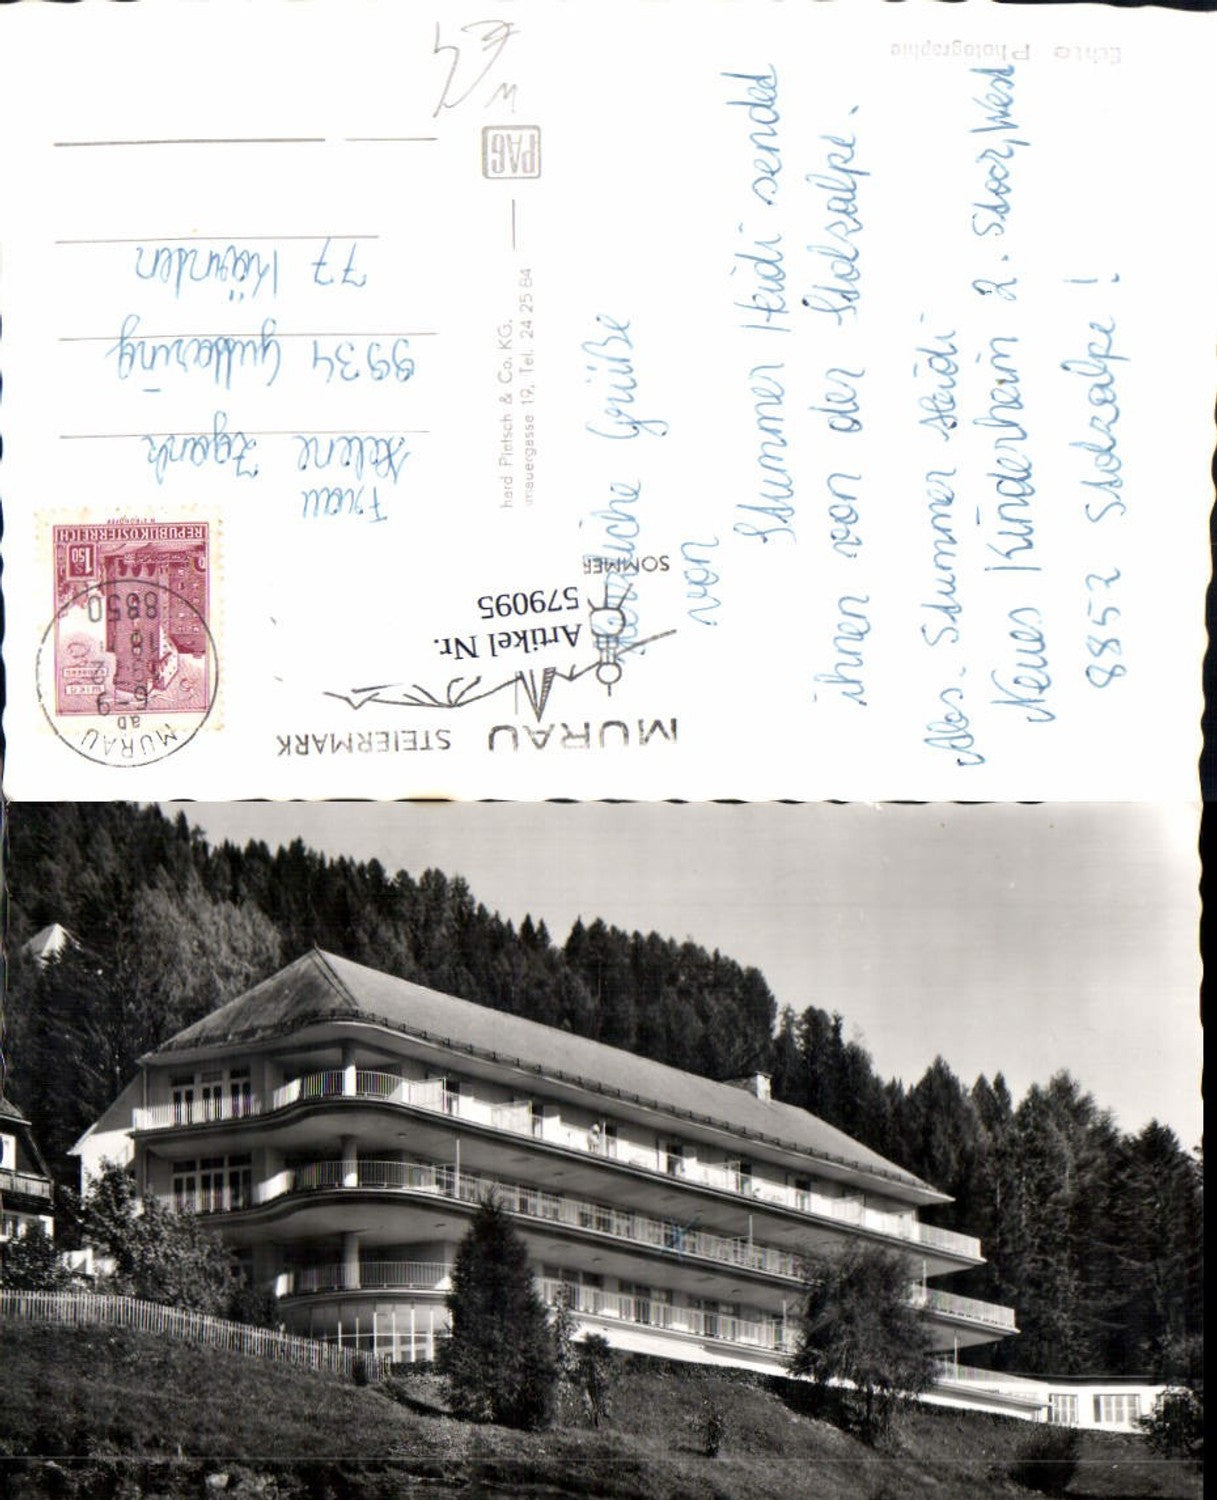 Echte Photographie
Herzliche Grüße
von
Stummer Heidi sendet
ihnen von der Stolzalpe.
Abs. Stummer Heidi
Neues Kinderheim 2. Stock, West
8852 Stolzalpe!
PAG
hard Pietsch & Co. KG,
mauergasse 19, Tel. 24 25 84
MURAU STEIERMARK
SOMMER
Artikel Nr.
579095
MURAU
8850
REPUBLIK ÖSTERREICH
1.50
WIEN
Frau
Helene
9934 Guttaring
77 Kärnten